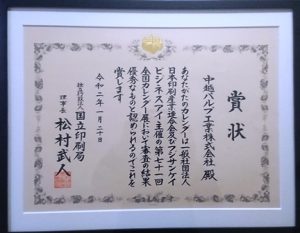 賞状
中越パルプ工業株式会社 殿
あなたがたのカレンダーは一般社団法人
日本印刷産業連合会及びフジサンケイ
ビジネスアイ主催の第七十一回
全国カレンダー展において審査の結果
優秀なものと認められるのでこれを
賞します
令和二年一月二十日
独立行政法人
国立印刷局
理事長 松村武人